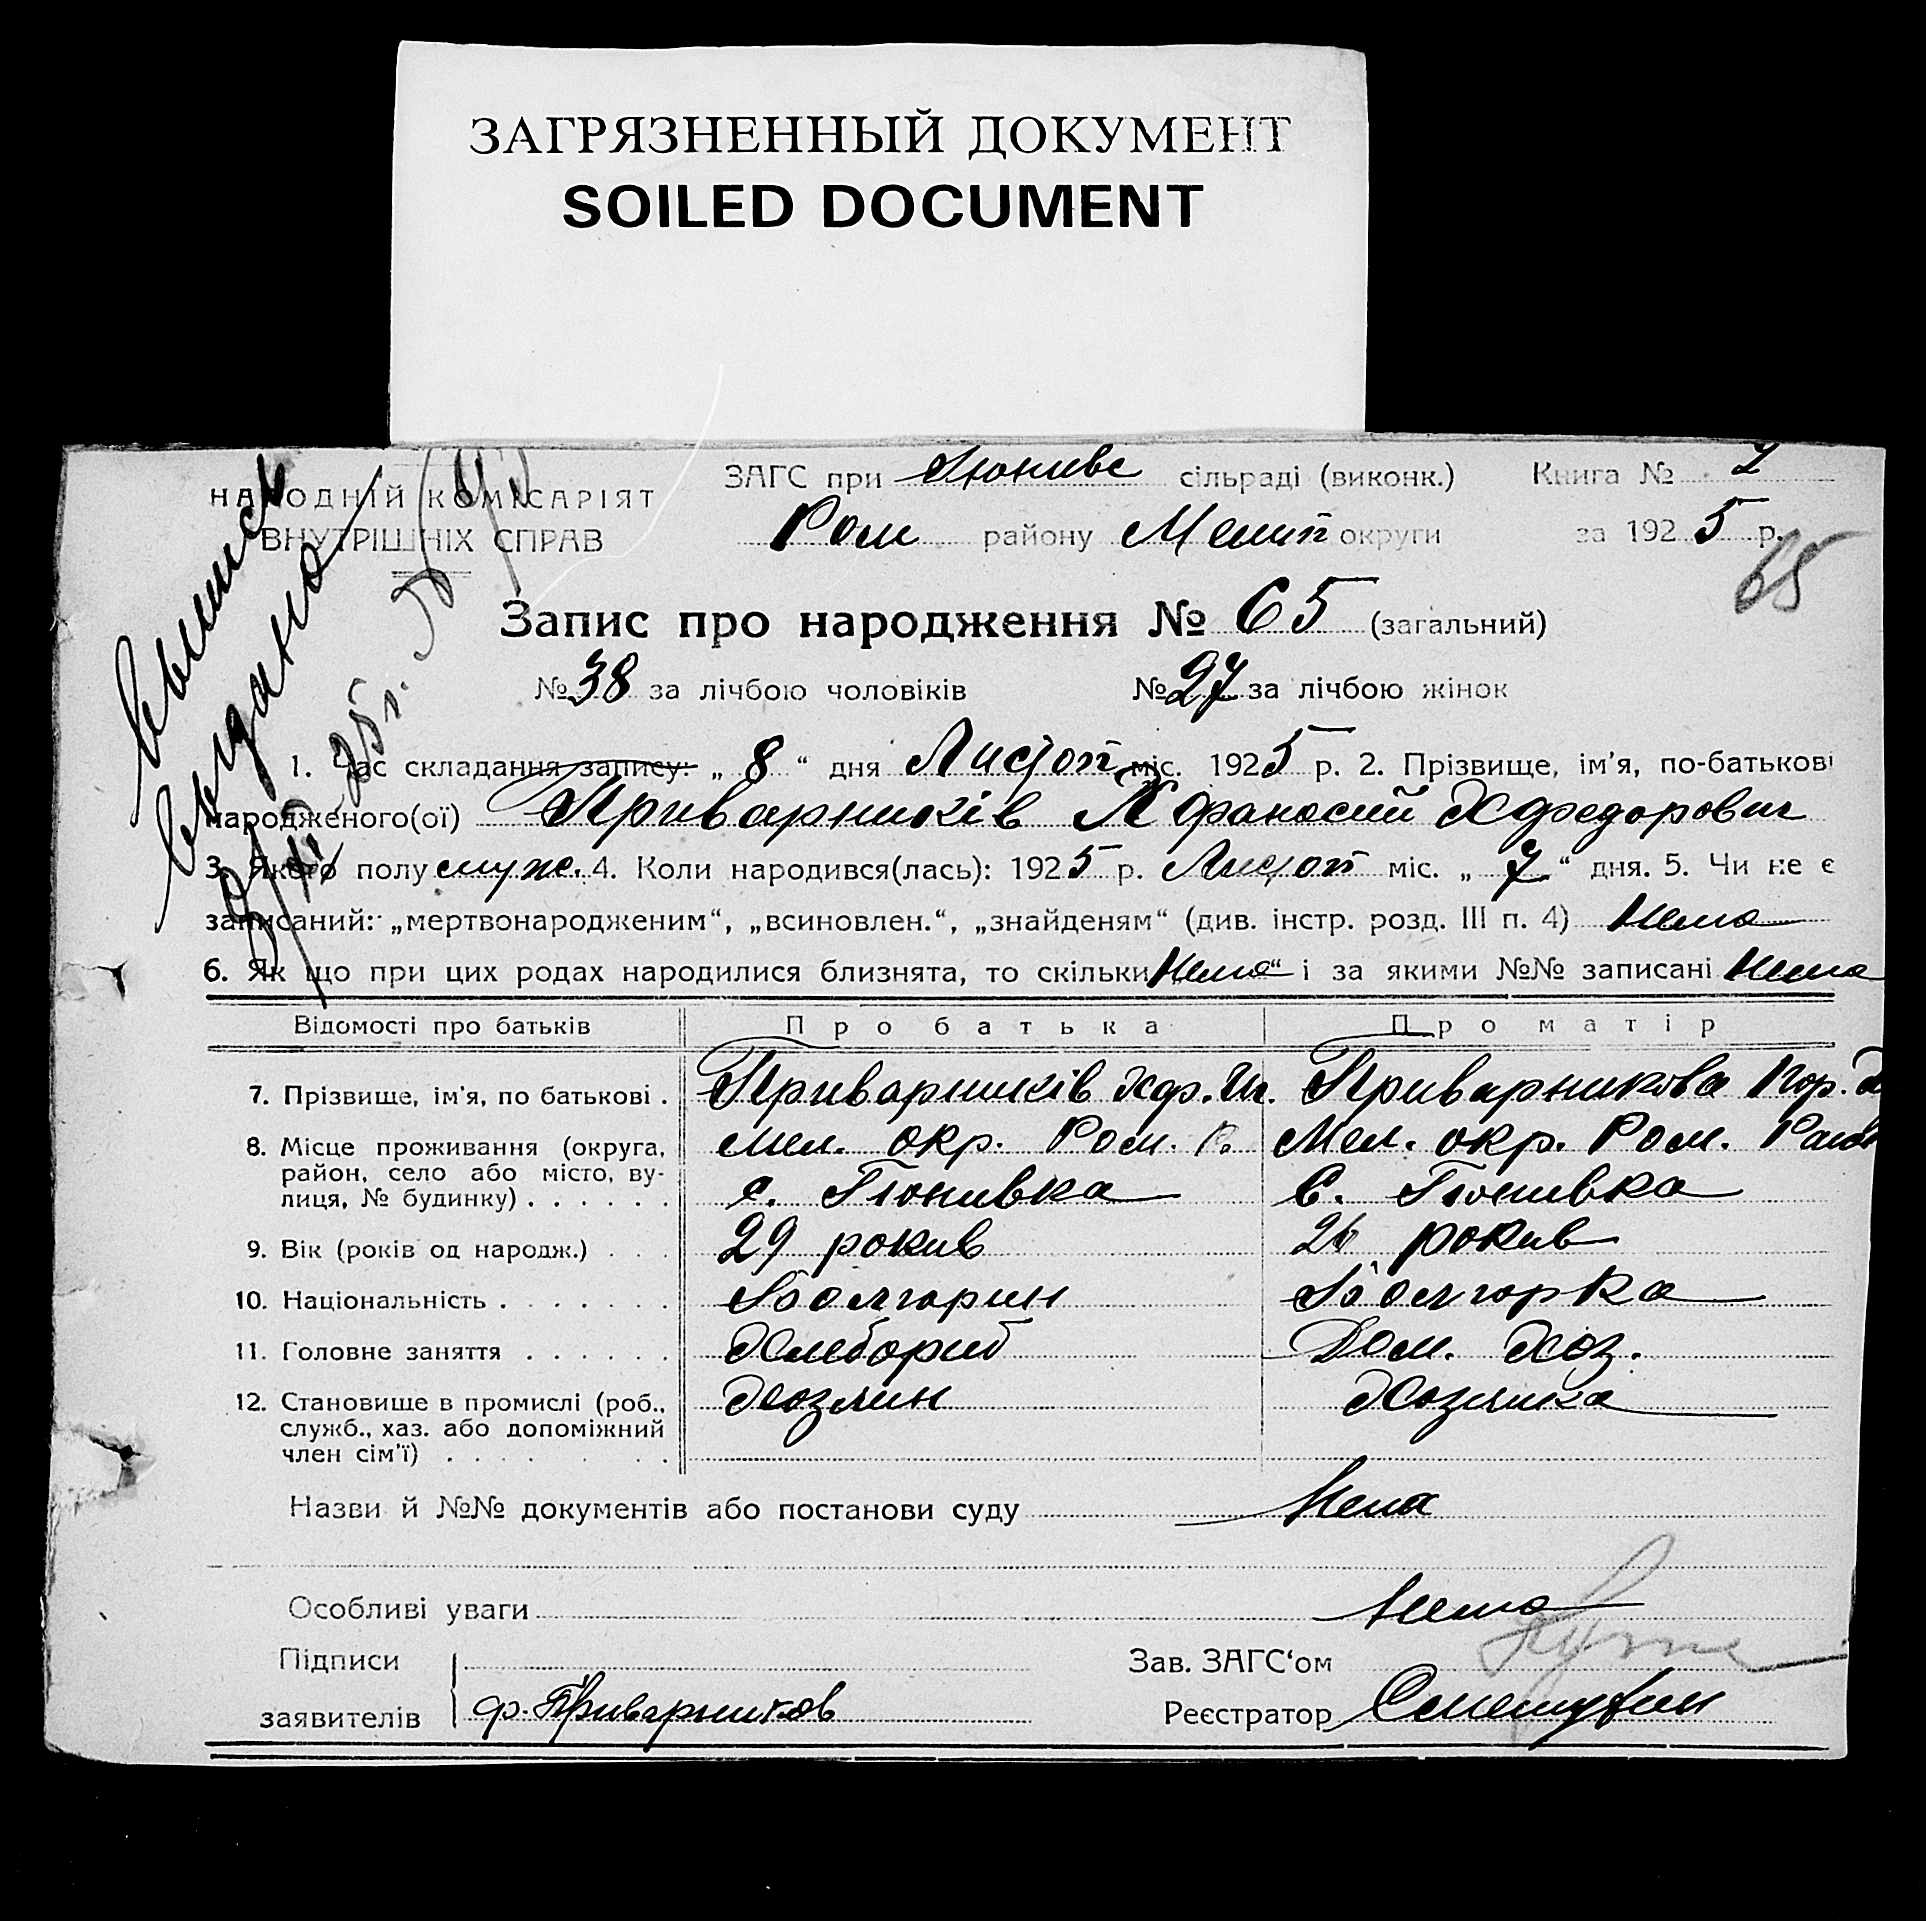 ЗАГРЯЗНЕННЫЙ ДОКУМЕНТ
SOILED DOCUMENT
НАРОДНІЙ КОМІСАРІЯТ
ВНУТРІШНІХ СПРАВ
ЗАГС при Тюнивс сільраді (виконк.) Книга №
Ром району Мелит округи за 1925 р.
65
Выпись
выдана
Запис про народження № 65 (загальний)
№ 38 за лічбою чоловіків № 27 за лічбою жінок
1. Час складання запису: „ 8 “ дня Листоп міс. 1925 р. 2. Прізвище, ім'я, по-батькові
народженого(ої) Приварників Афанасий Хфедорович
3. Якого полу муж. 4. Коли народився(лась): 1925 р. Листоп міс. „ 7 “ дня. 5. Чи не є
записаний: „мертвонародженим“, „всиновлен.“, „знайденям“ (див. інстр. розд. III п. 4) Нема
6. Як що при цих родах народилися близнята, то скільки „Нема“ і за якими №№ записані Нема
Відомості про батьків Про батька Про матір
7. Прізвище, ім'я, по батькові . Приварників Хф. Приварникова
8. Місце проживання (округа, Мел. окр. Ром. Р. Мел. окр. Ром.
район, село або місто, ву-
лиця, № будинку) . . . . . . с. Тюнивка С. Тюнивка
9. Вік (років од народж.) . . . 29 рокив 26 рокив
10. Національність . . . . . . . Болгарин Болгарка
11. Головне заняття . . . . . . Хлебориб Дом. Хоз.
12. Становище в промислі (роб., Хозяин Хозяика
служб., хаз. або допоміжний
член сім'ї) . . . . . . .
Назви й №№ документів або постанови суду Нема
Особливі уваги Нема
Підписи
заявителів ф. Приварников
Зав. ЗАГС‘ом
Реєстратор